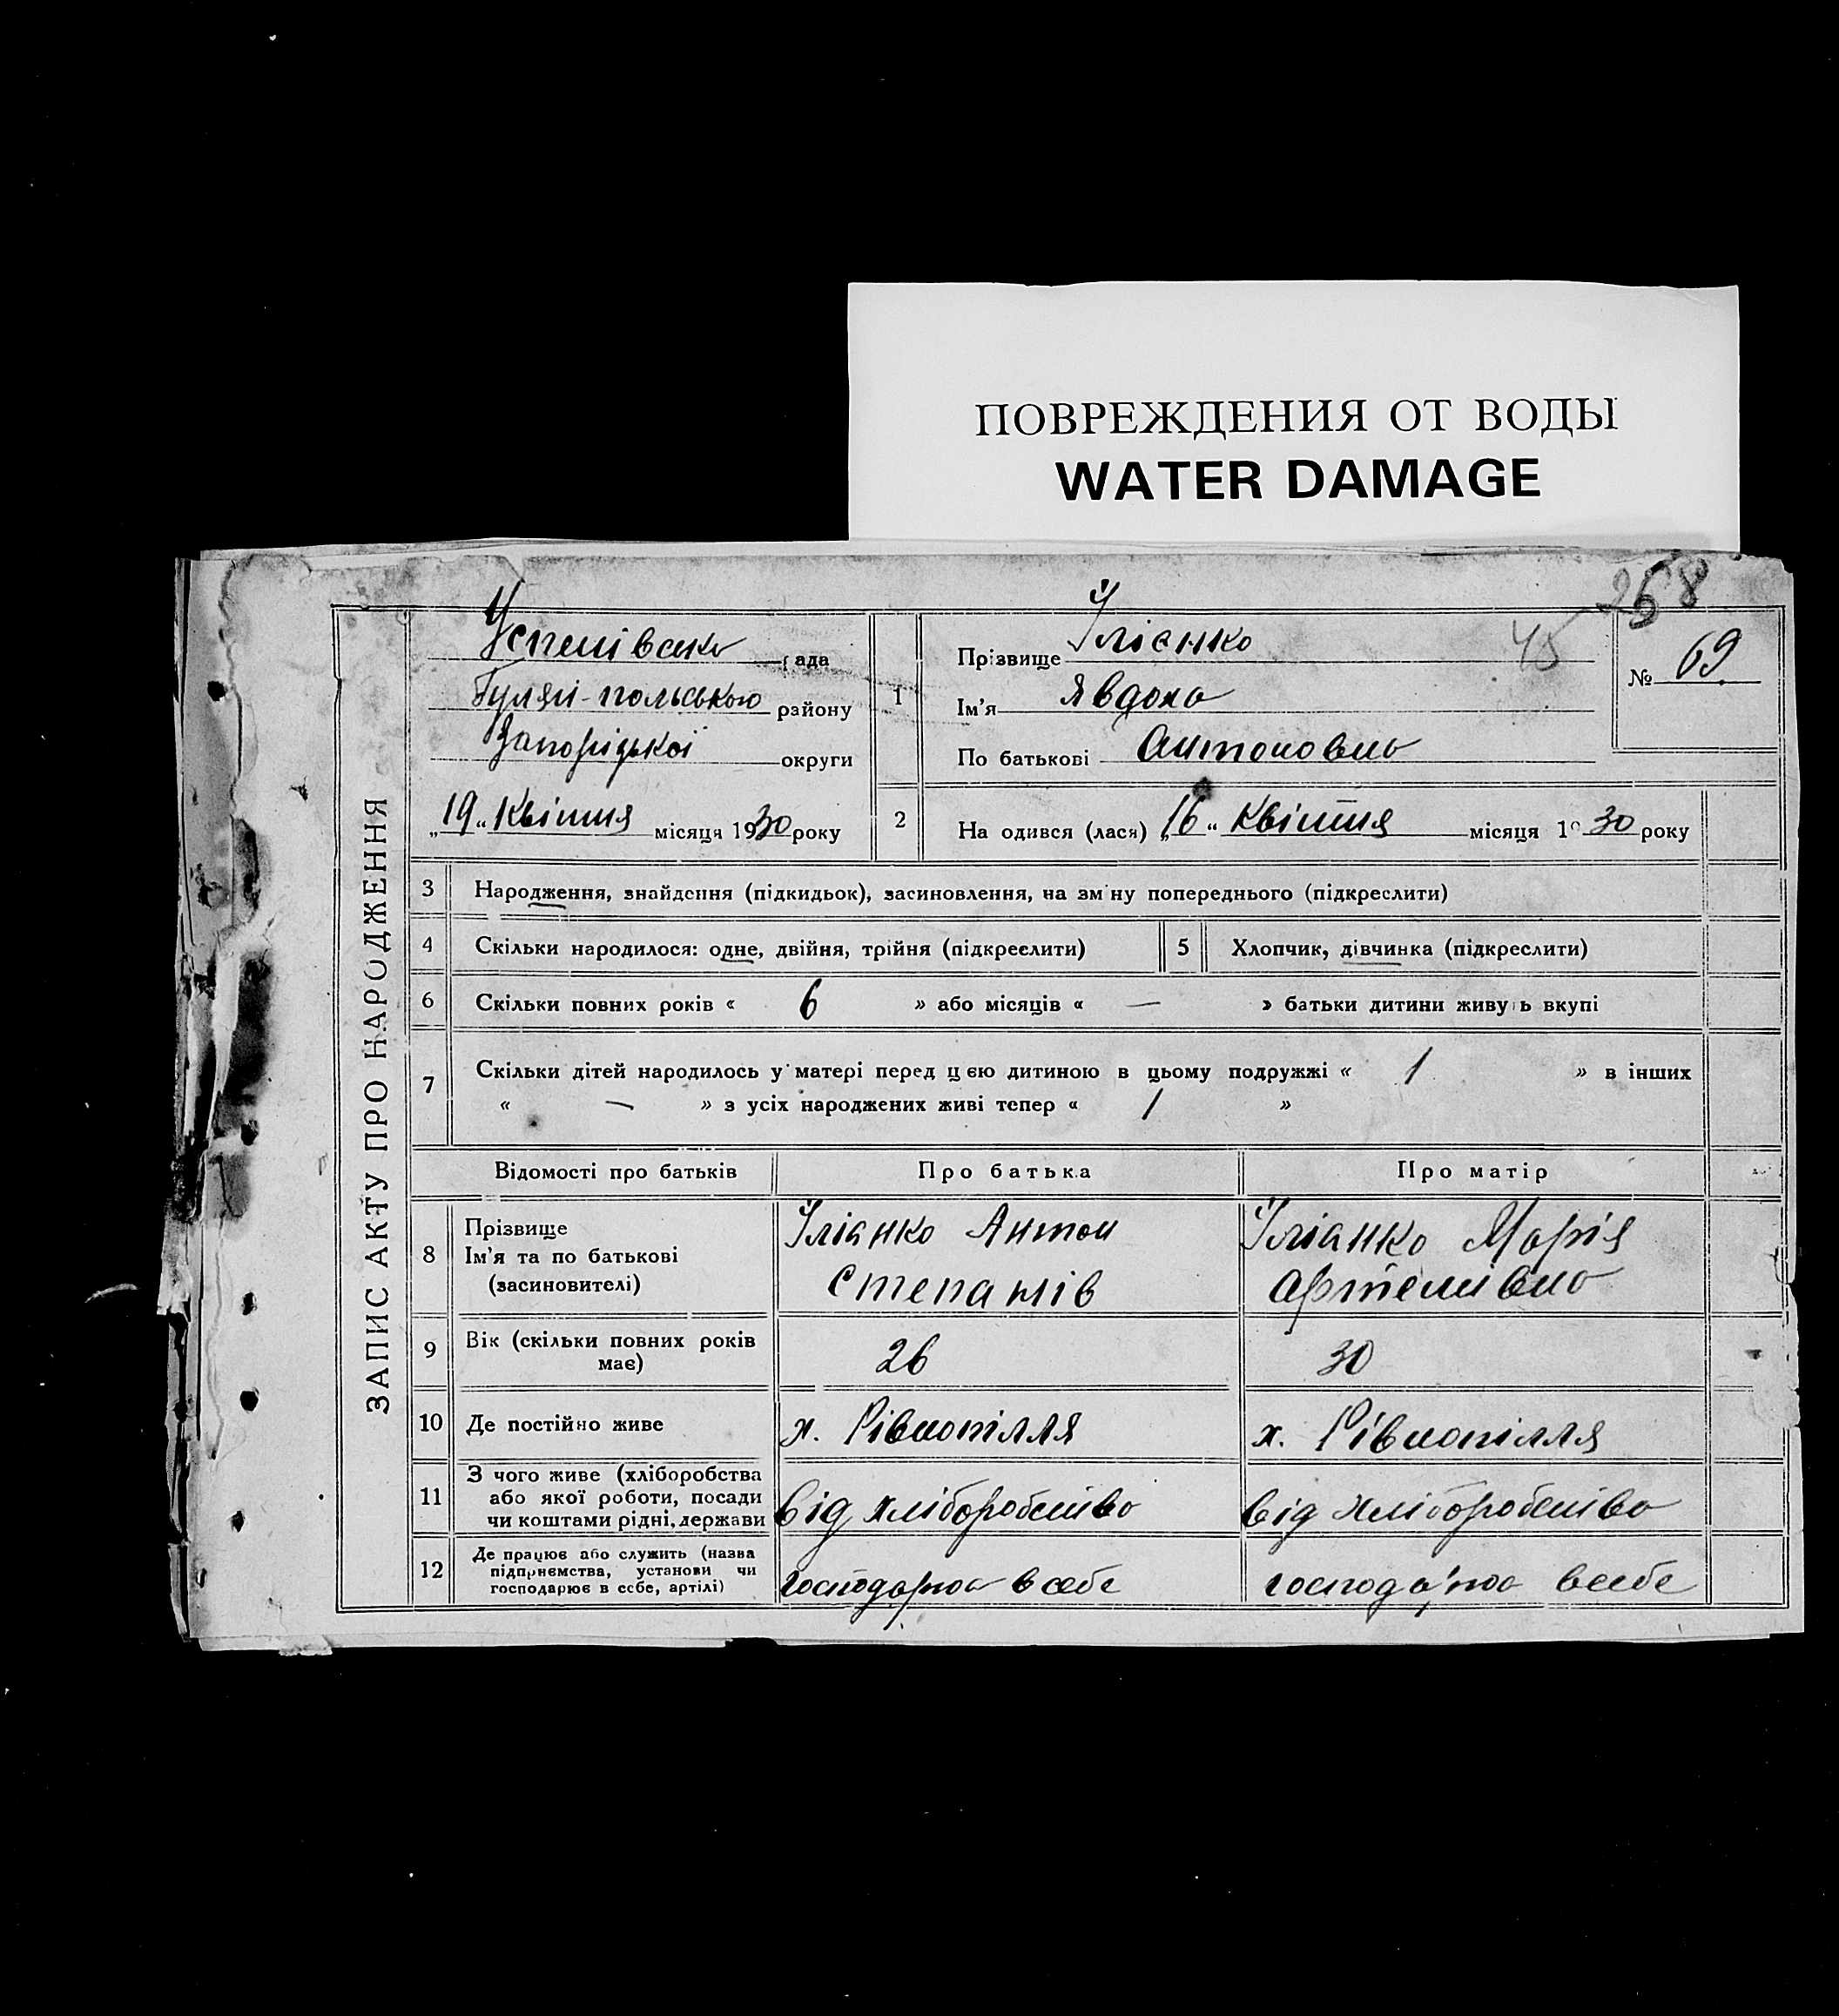 ПОВРЕЖДЕНИЯ ОТ ВОДЫ
WATER DAMAGE
258
45
№ 69.
ЗАПИС АКТУ ПРО НАРОДЖЕННЯ
Успенівська рада
Гуляй-польського району
Запорізької округи
„19„ Квітня місяця 1930 року
1
Прізвище Ілієнко
Ім'я Явдоха
По батькові Антоновна
2 На одився (лася) „16„ Квітня місяця 1930 року
3 Народження, знайдення (підкидьок), засиновлення, на зм ну попереднього (підкреслити)
4 Скільки народилося: одне, двійня, трійня (підкреслити) 5 Хлопчик, дівчинка (підкреслити)
6 Скільки повних років « 6 » або місяців « — » батьки дитини живу ь вкупі
7 Скільки дітей народилось у матері перед цею дитиною в цьому подружжі « 1 » в інших
« — » з усіх народжених живі тепер « 1 »
Відомості про батьків Про батька Про матір
8 Прізвище
Ім'я та по батькові
(засиновителі)
Іліанко Антон
Степанів
Іліанко Марія
Артемівно
9 Вік (скільки повних років
має)
26 30
10 Де постійно живе х. Рівнопілля х. Рівнопілля
11 З чого живе (хліборобства
або якої роботи, посади
чи коштами рідні, держави
від хліборобство від хліборобство
12 Де працює або служить (назва
підприємства, установи чи
господарює в себе, артілі)
в себе в себе